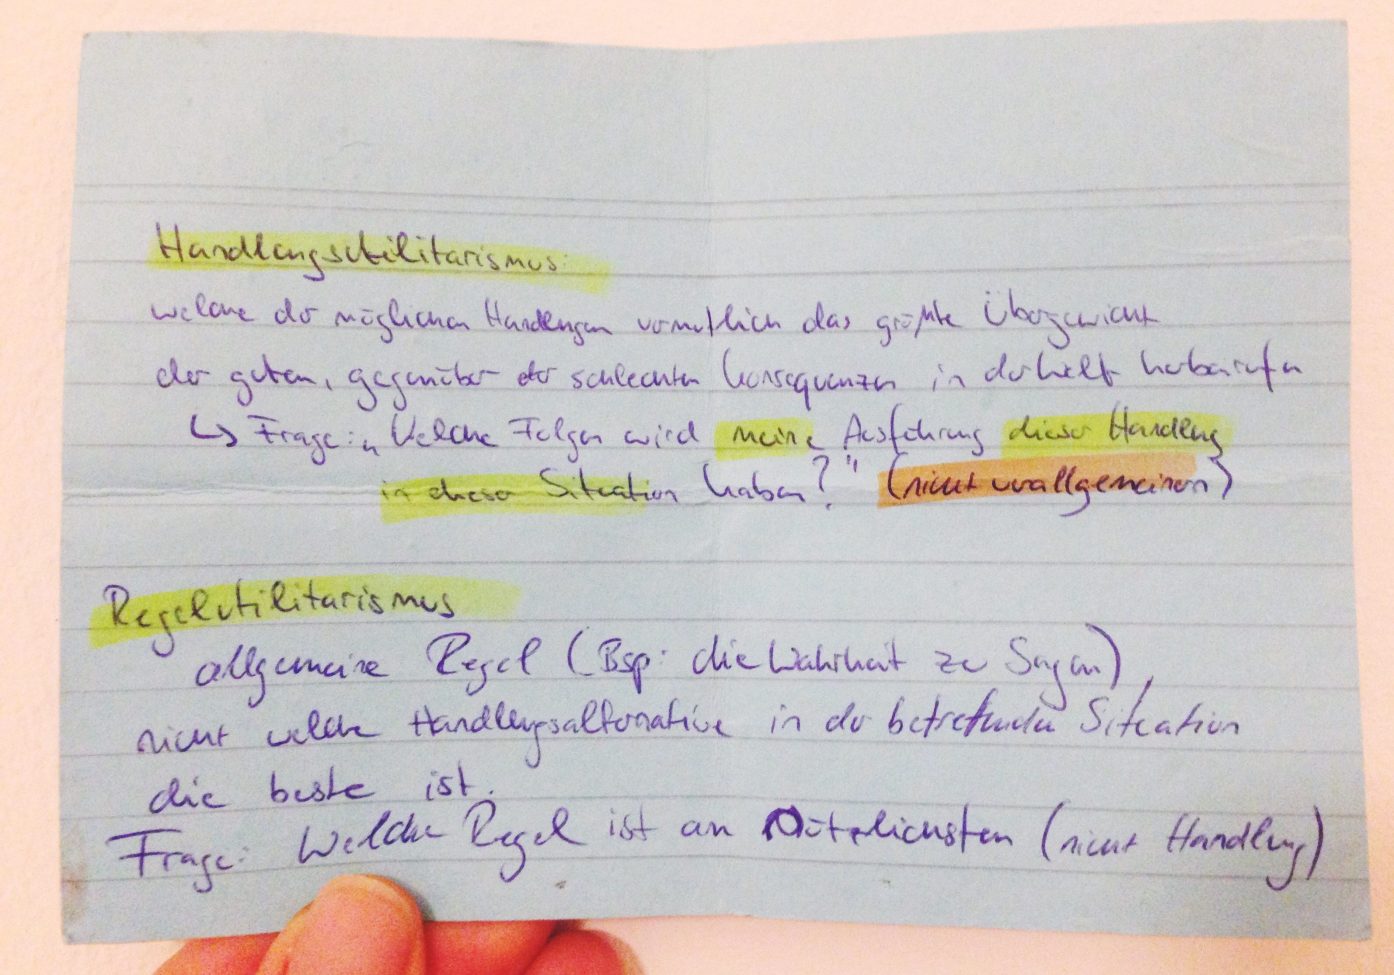 Handlungsutilitarismus:
welche der möglichen Handlungen vermutlich das größte Übergewicht
der guten, gegenüber der schlechten Konsequenzen in der Welt herbeirufen
↳ Frage: „Welche Folgen wird meine Ausführung dieser Handlung
in dieser Situation haben?" (nicht verallgemeinern)
Regelutilitarismus
allgemeine Regel (Bsp: die Wahrheit zu Sagen),
nicht welche Handlungsalternative in der betreffenden Situation
die beste ist.
Frage: Welche Regel ist am Nützlichsten (nicht Handlung)